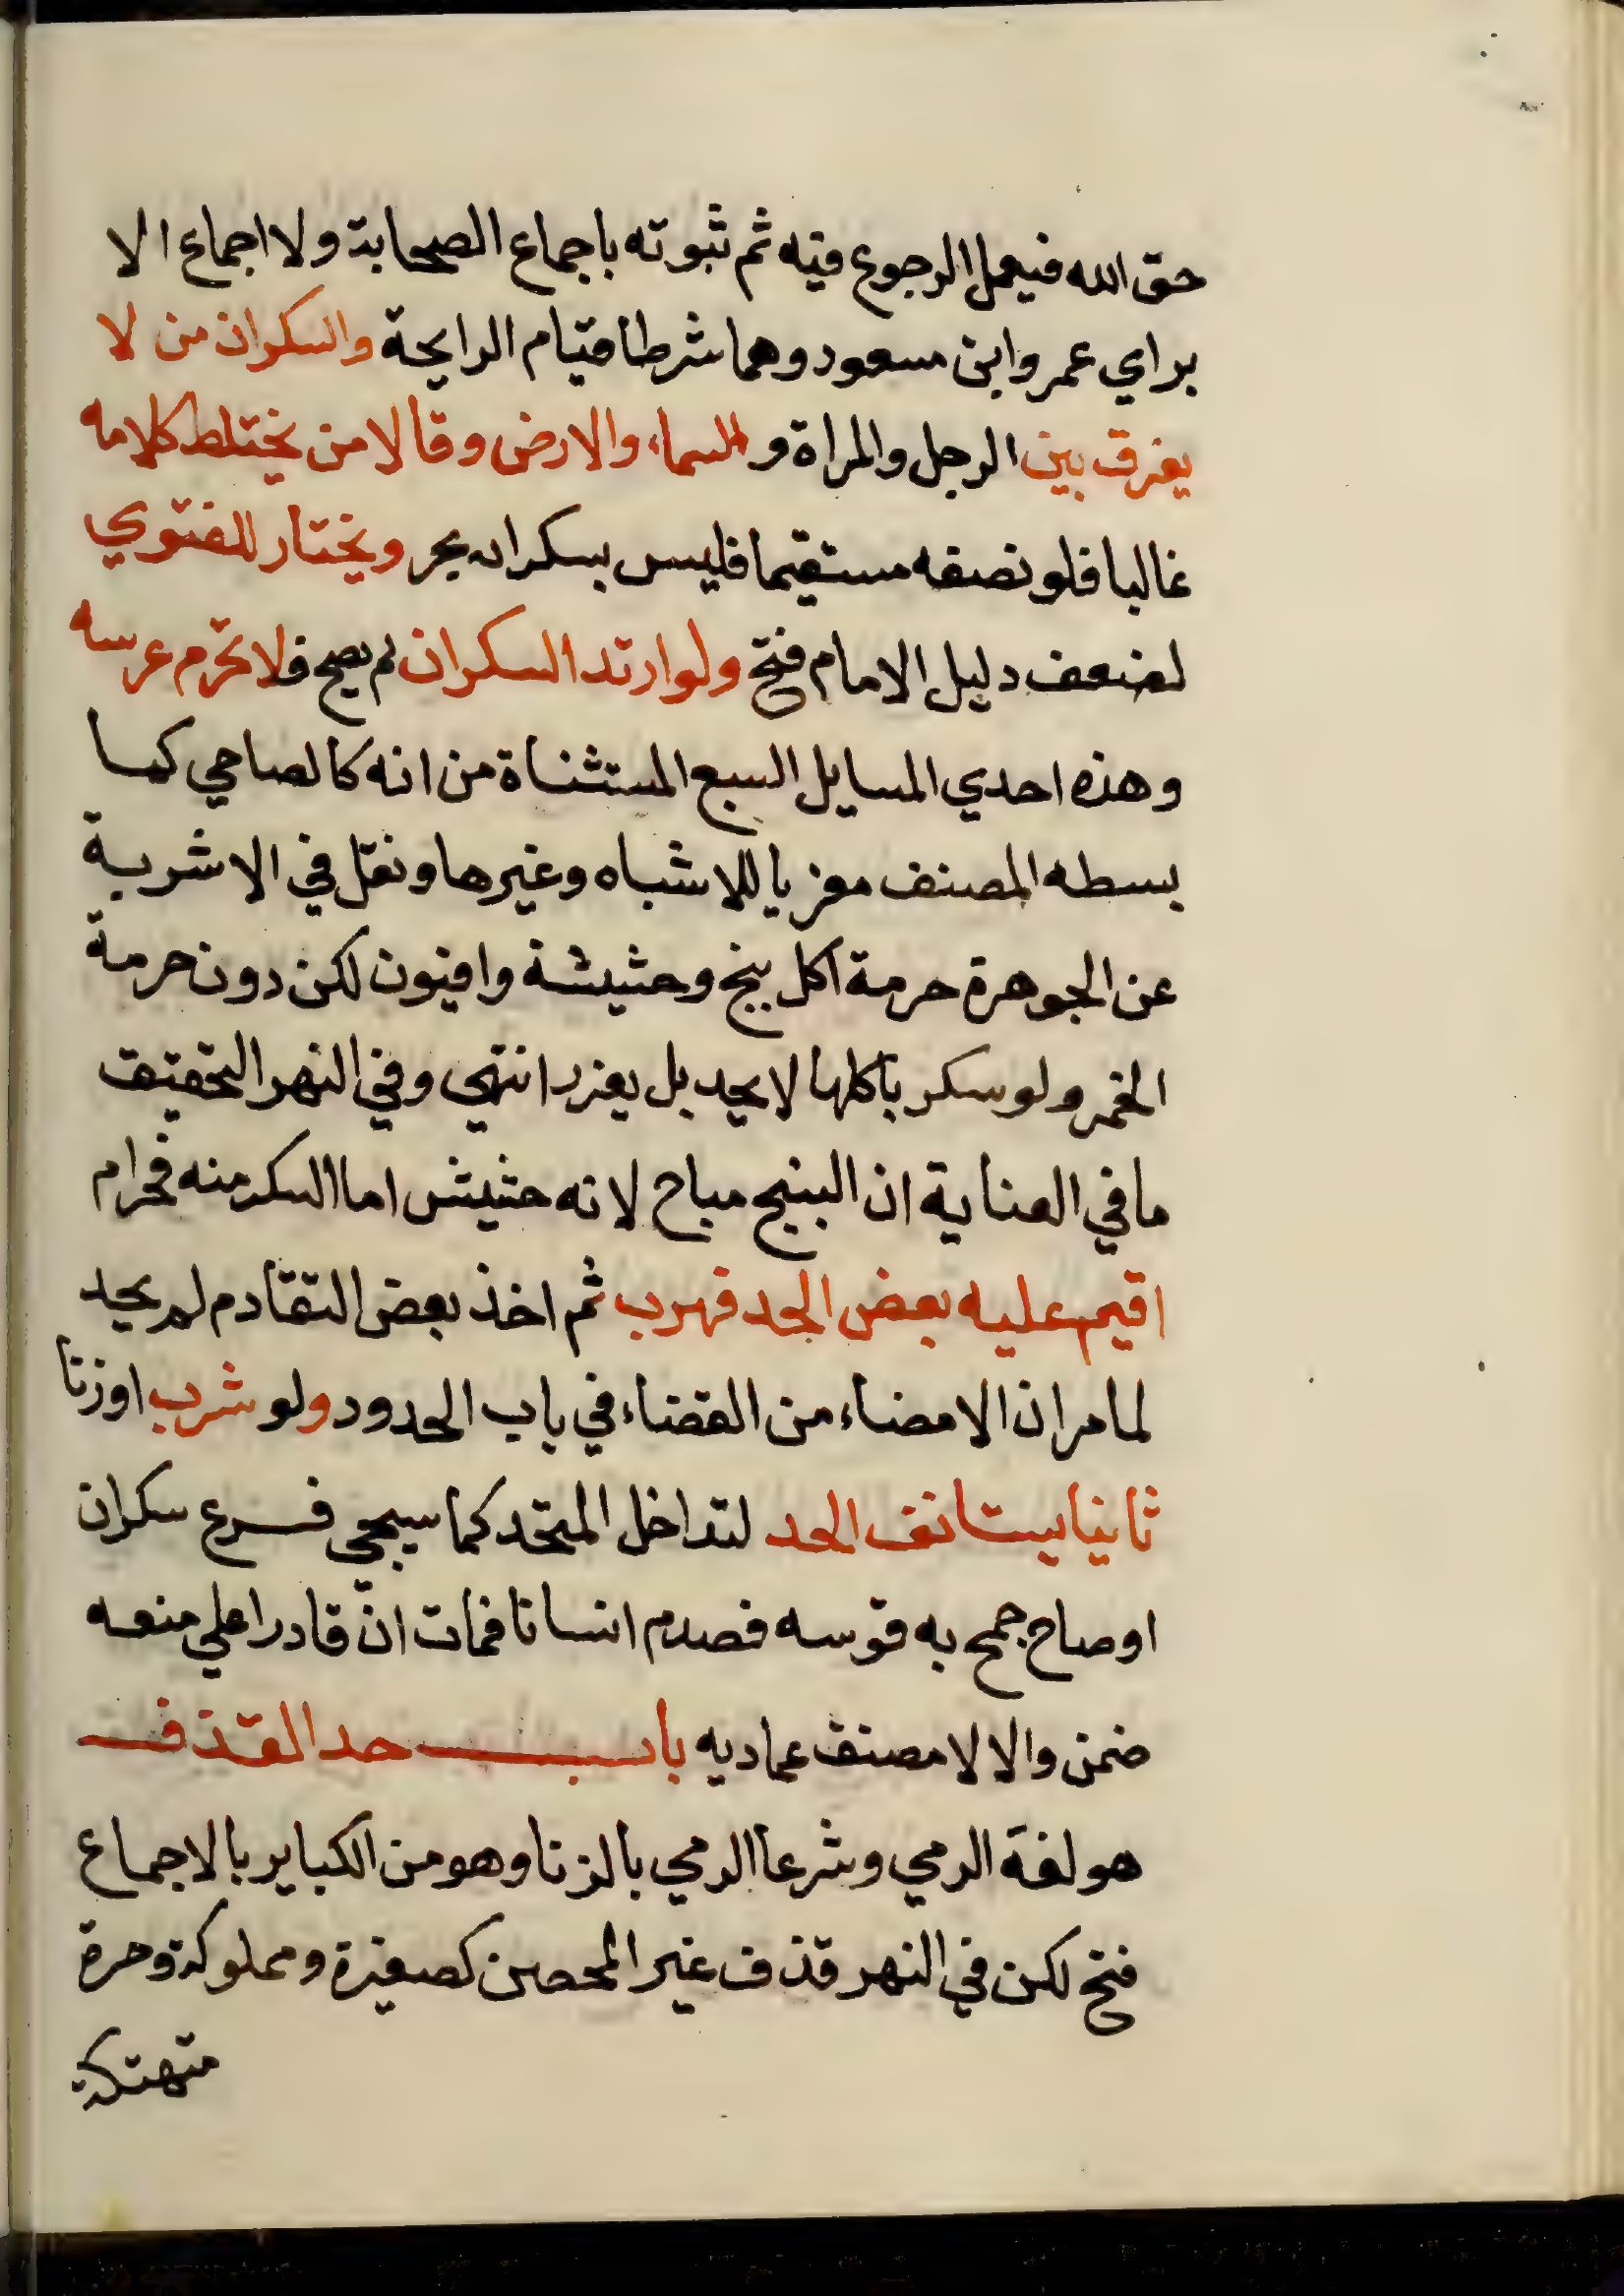 حق الله فيعمل الرجوع فيه ثم ثبوته باجماع الصحابة ولا اجماع الا
براي عمر وابن مسعود وهما شرطا قيام الرايحة والسكران من لا
يفرق بين الرجل والمراة و السماء والارض وقالا من يختلط كلامه
غالبا فلو نصفه مستقيما فليس بسكران بحر ويختار للفتوي
لضعف دليل الامام فتح ولو ارتد السكران لم يصح فلا تحرم عرسه
وهذه احدي المسايل السبع المستثناة من انه كالصاحي كما
بسطه المصنف معزيا للاشباه وغيرها ونقل في الاشربة
عن الجوهرة حرمة اكل بنج وحشيشة وافيون لكن دون حرمة
الخمر ولو سكر باكلها لا يحد بل يعزر انتهي وفي النهر التحقيق
ما في العناية ان البنج مباح لانه حشيش اما السكر منه فحرام
اقيم عليه بعض الحد فهرب ثم اخذ بعض التقادم لم يحد
لما مر ان الامضاء من القضاء في باب الحدود ولو شرب او زنا
ثانيا يستانف الحد لتداخل المتحد كما سيجي فرع سكران
او صاح جمح به قوسه فصدم انسانا فمات ان قادرا علي منعه
ضمن والا لا مصنف عماديه باب حد القذف
هو لغة الرمي وشرعا الرمي بالزنا وهو من الكباير بالاجماع
فتح لكن في النهر قذف غير المحصن كصغيرة ومملوكة وحرة
متهتكة